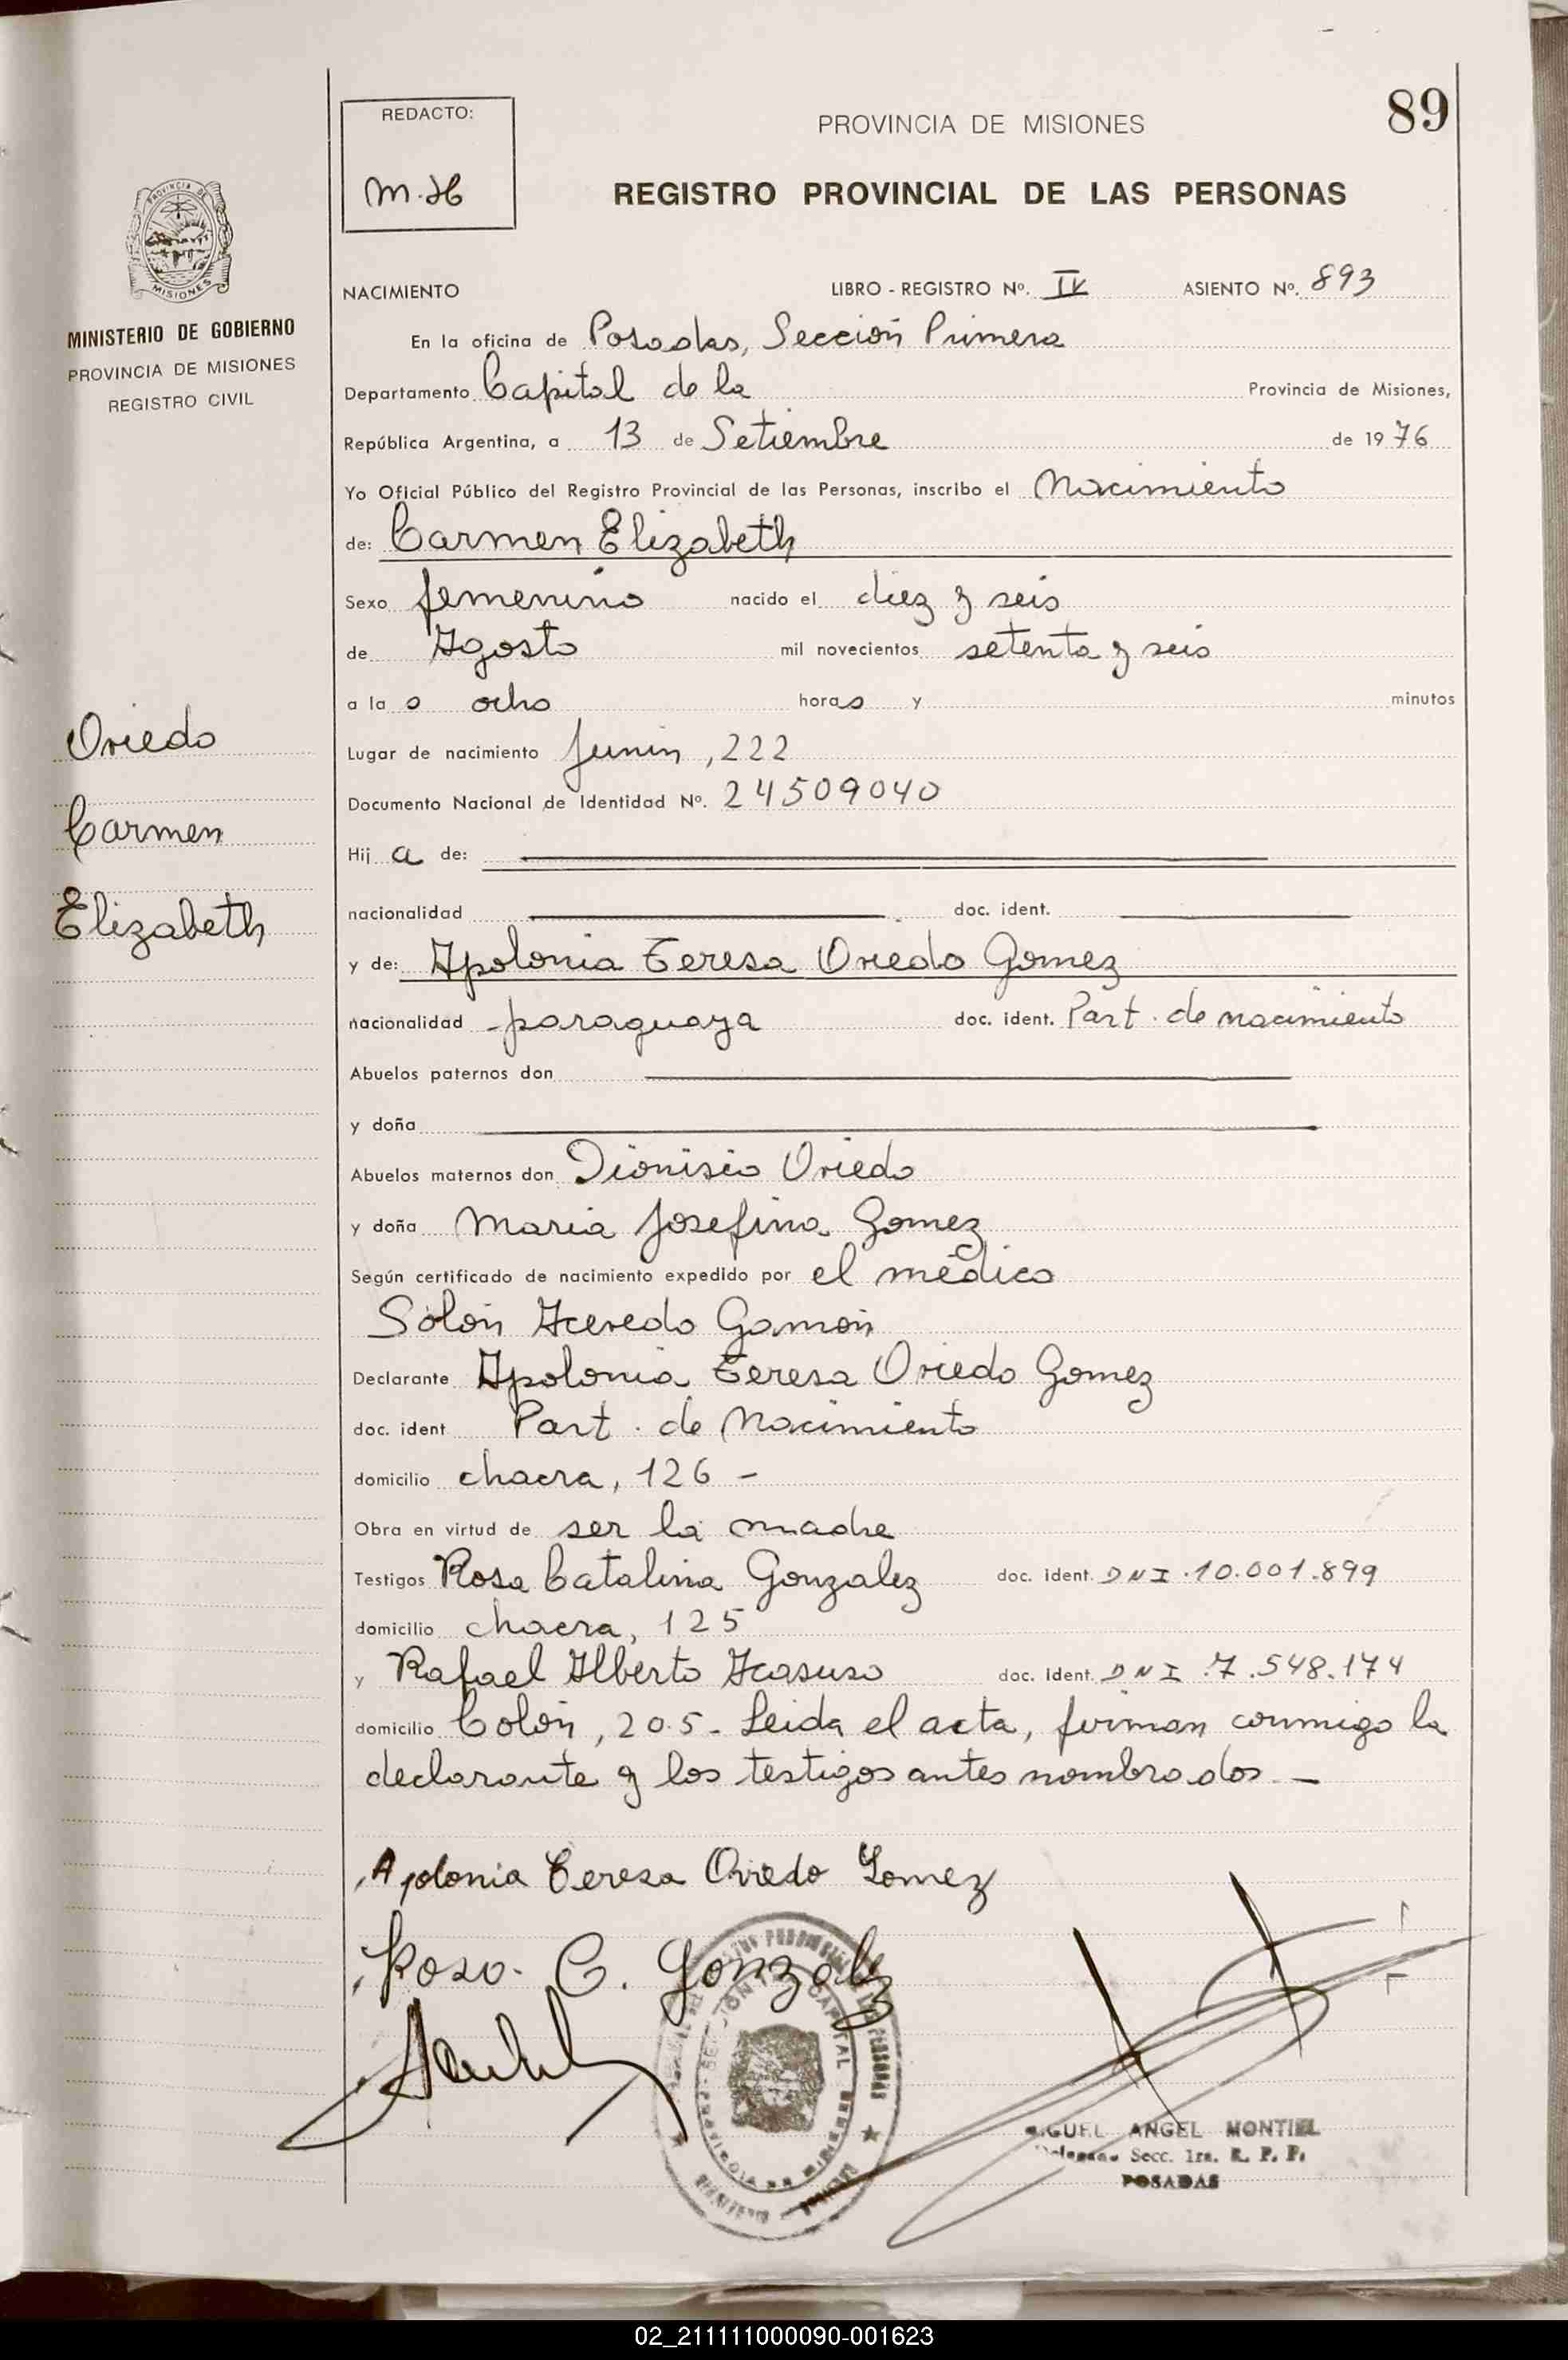 89
REDACTO:
M.H
PROVINCIA DE MISIONES
REGISTRO PROVINCIAL DE LAS PERSONAS
PROVINCIA DE
MISIONES
MINISTERIO DE GOBIERNO
PROVINCIA DE MISIONES
REGISTRO CIVIL
Oviedo
Carmen
Elizabeth
NACIMIENTO LIBRO - REGISTRO Nº. IV ASIENTO Nº. 893
En la oficina de Posadas, Sección Primera
Departamento Capital de la Provincia de Misiones,
República Argentina, a 13 de Setiembre de 1976
Yo Oficial Público del Registro Provincial de las Personas, inscribo el Nacimiento
de: Carmen Elizabeth
Sexo femenino nacido el diez y seis
de Agosto mil novecientos setenta y seis
a las ocho horas y minutos
Lugar de nacimiento Junin, 222
Documento Nacional de Identidad Nº. 24509040
Hija de:
nacionalidad doc. ident.
y de: Apolonia Teresa Oviedo Gomez
nacionalidad paraguaya doc. ident. Part. de nacimiento
Abuelos paternos don
y doña
Abuelos maternos don Dionisio Oviedo
y doña Maria Josefina Gomez
Según certificado de nacimiento expedido por el médico
Solón Acevedo Gamón
Declarante Apolonia Teresa Oviedo Gomez
doc. ident Part. de Nacimiento
domicilio chacra, 126 -
Obra en virtud de ser la madre
Testigos Rosa Catalina Gonzalez doc. ident. DNI.10.001.899
domicilio chacra, 125
y Rafael Alberto Acasuso doc. Ident. DNI.7.548.174
domicilio Colón, 205- Leida el acta, firman conmigo la
declarante y los testigos antes nombrados. -
Apolonia Teresa Oviedo Gomez
Rosa C. Gonzalez
MIGUEL ANGEL MONTIEL
Secc. 1ra. R. P. P.
POSADAS
02_211111000090-001623